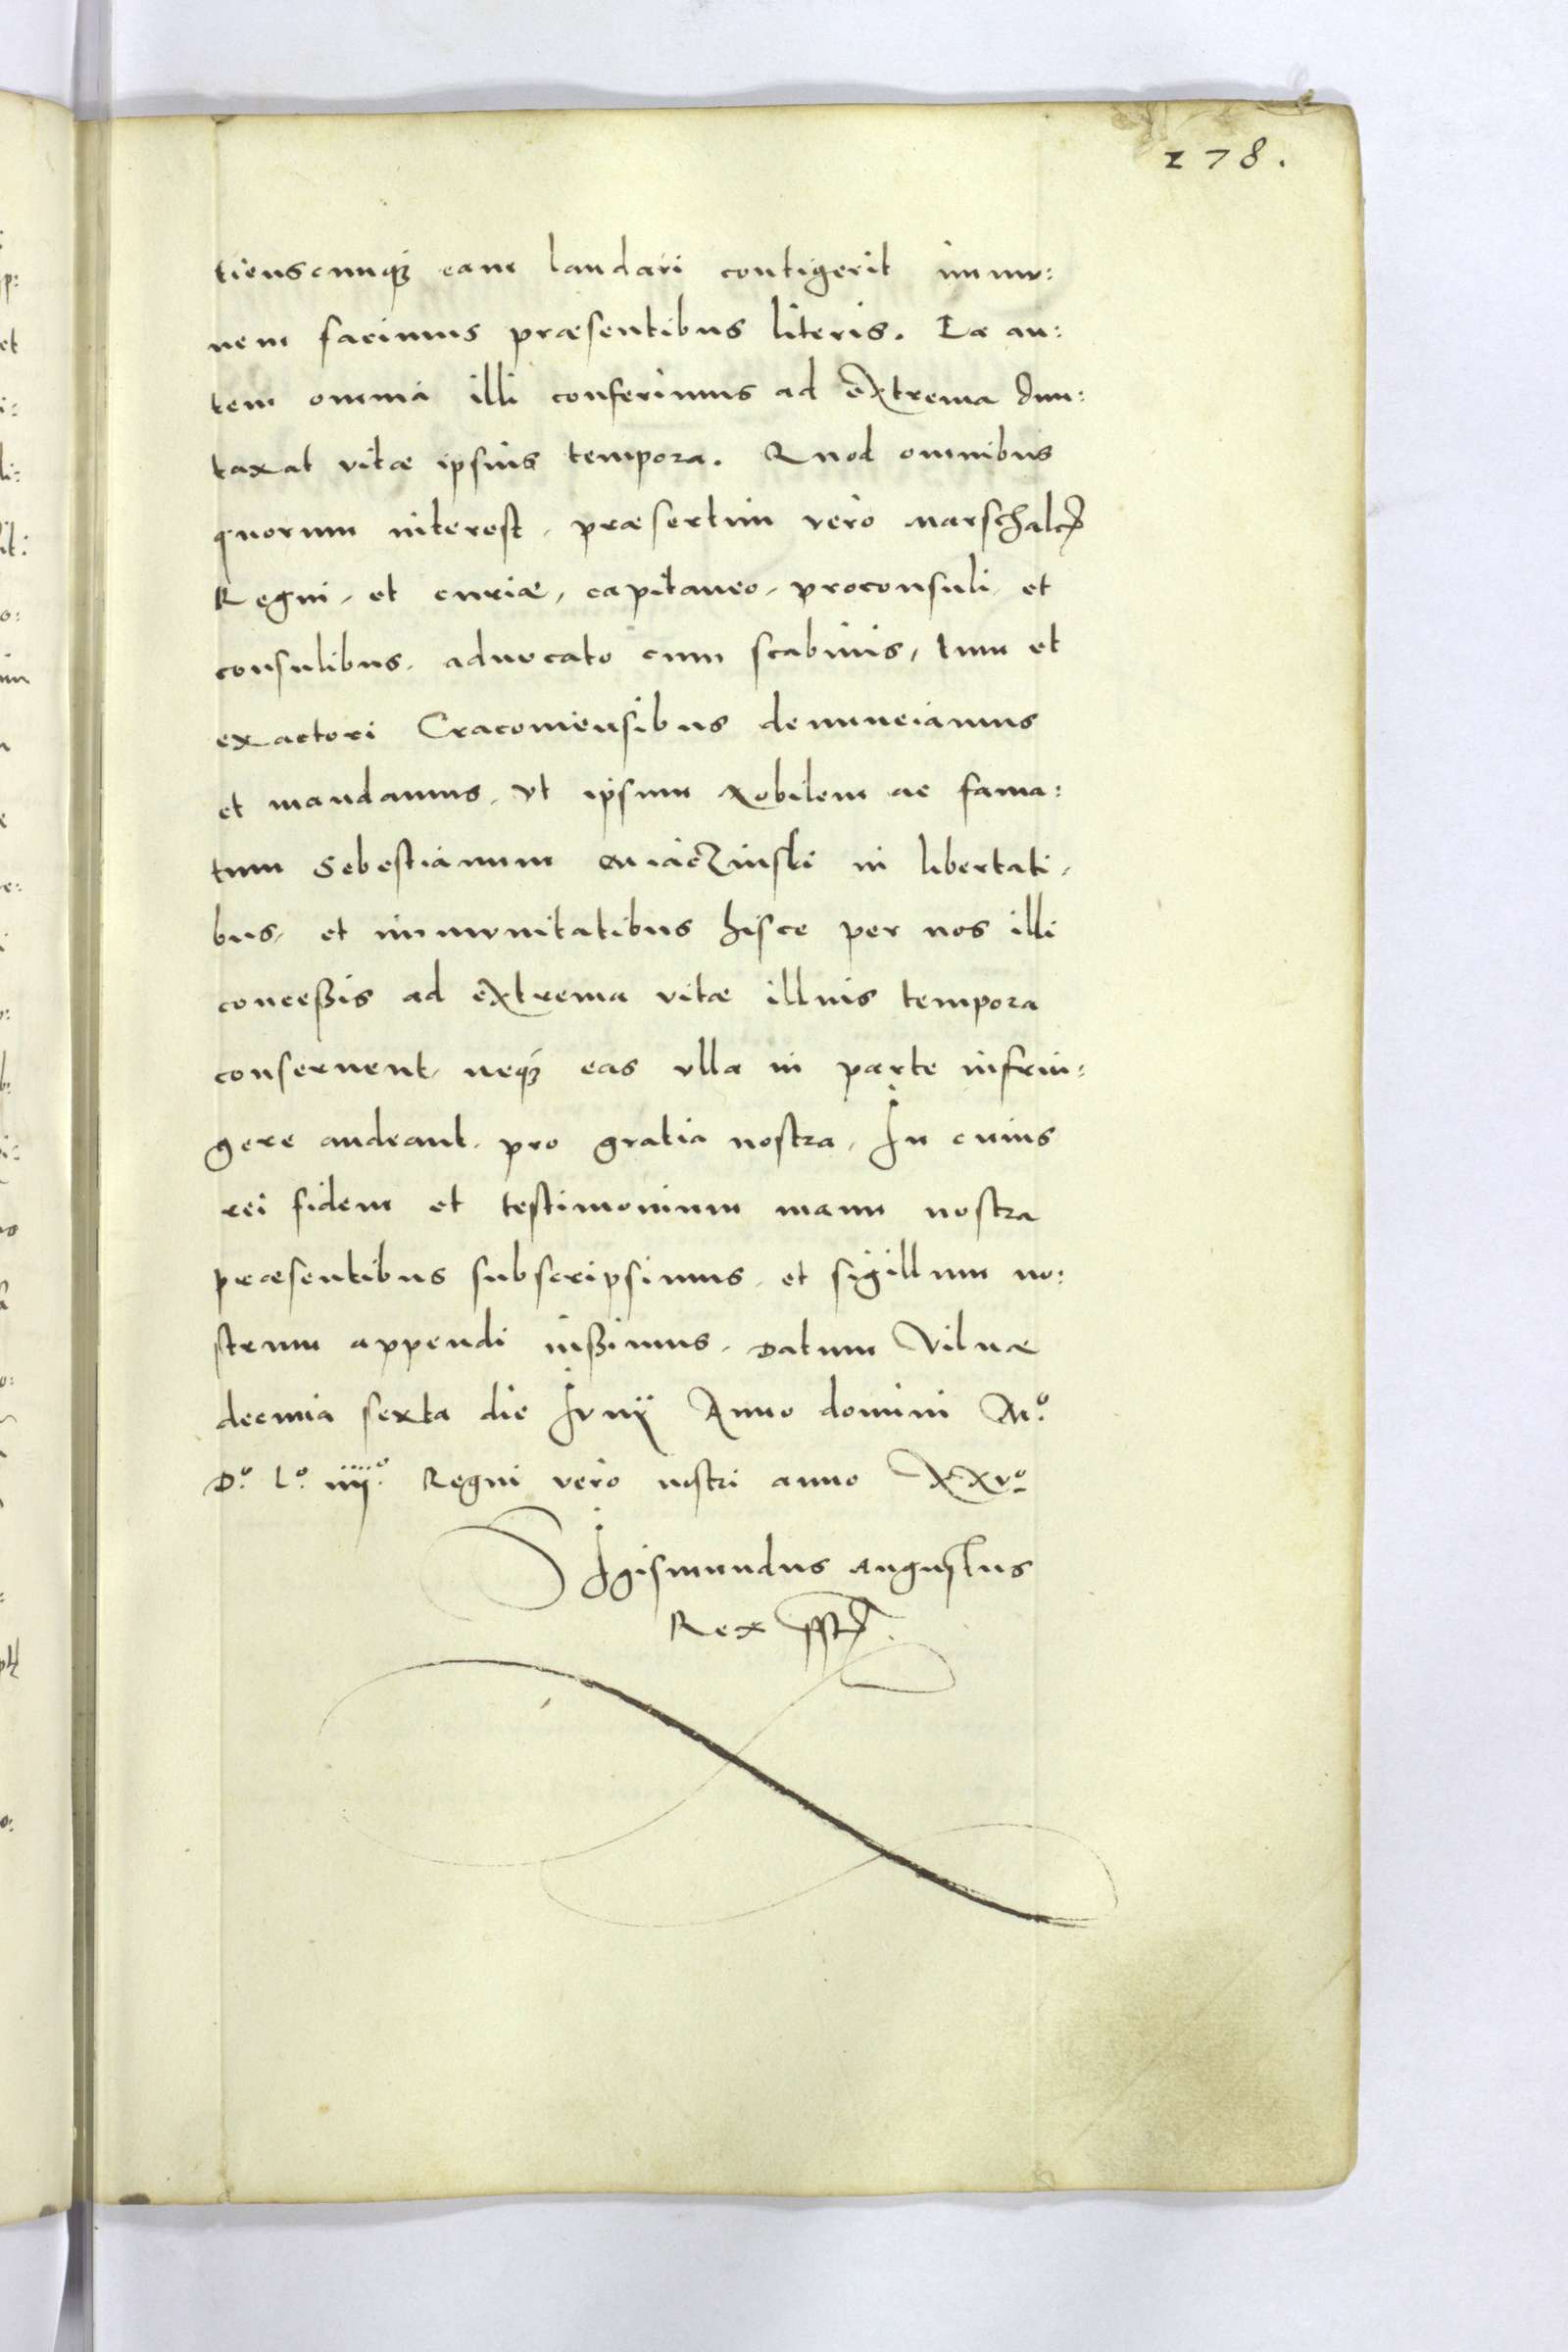 278.
tienscunque eam laudari contigerit immu:
nem facimus præsentibus literis. Ea au:
tem omnia illi conferimus ad extrema dun:
taxat vitæ ipsius tempora. Quod omnibus
quorum interest, præsertim vero Marschalco
Regni, et curiæ, capitaneo, proconsuli, et
consulibus, aduocato cum scabinis, tum et
exactori Cracouiensibus denunciamus
et mandamus, vt ipsum Nobilem ac fama:
tum Sebestianum Miączinski in libertati,
bus, et immunitatibus hisce per nos illi
conceßis ad extrema vitæ illius tempora
conseruent, neque eas vlla in parte infrin:
gere audeant, pro gratia nostra, In cuius
rei fidem et testimonium manu nostra
præsentibus subscripsimus, et sigillum no:
strum appendi iußimus. Datum Vilnæ
decima sexta die Junij Anno domini Mº.
Dº. Lº. iiijº. Regni vero nostri anno XXvº
Sigismundus Augustus
Rex sst.